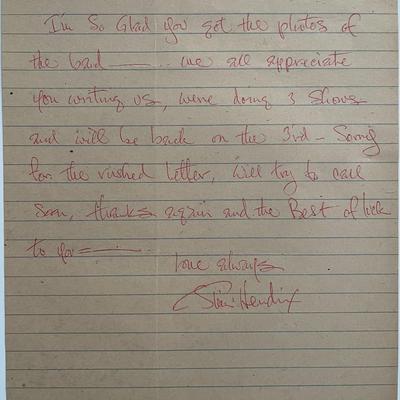 I'm So Glad you got the photos of
the band —— we all appreciate
you writing us, we're doing 3 shows
and will be back on the 3rd - Sorry
for the rushed letter, will try to call
Soon, thanks again and the Best of luck
to you ——
love always
Jimi Hendrix